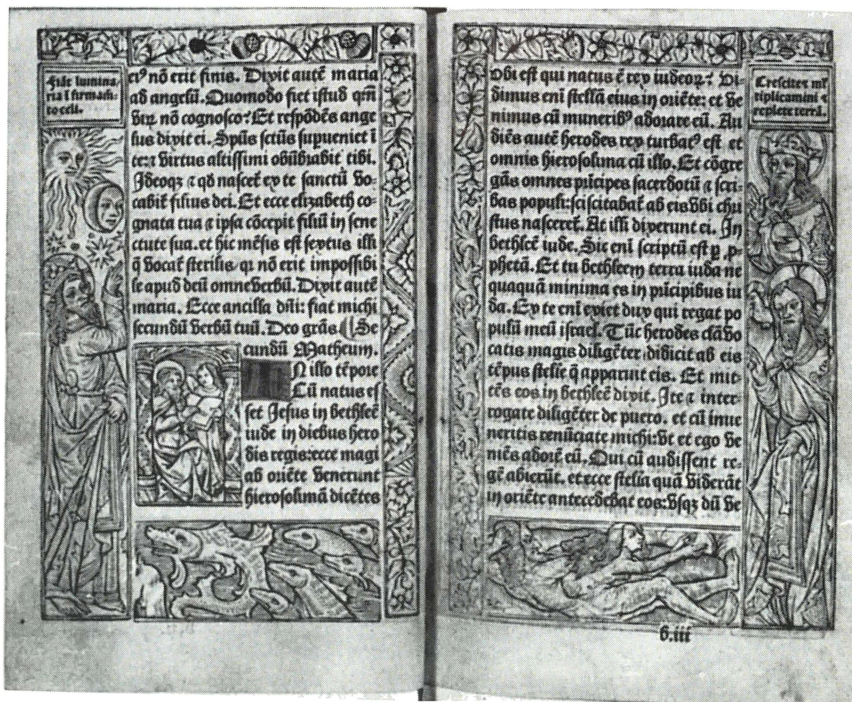 Fiãt lumina
ria ĩ firmamẽ
to celi.
eiꝰ nõ erit finis. Dixit autẽ maria
ad angelũ. Quomodo fiet istud qm̃
virũ nõ cognosco? Et respõdẽs ange
lus dixit ei. Spũs sctũs supueniet ĩ
te: ⁊ virtus altissimi obũbrabit tibi.
Ideoqꝫ ⁊ qd̃ nascet̃ ex te sanctũ vo-
cabit̃ filius dei. Et ecce elizabeth co-
gnata tua ⁊ ipsa cõcepit filiũ in sene
ctute sua. et hic mẽsis est sextus illi
q̃ vocat̃ sterilis/ qꝛ nõ erit impossibi
le apud deũ omne verbũ. Dixit autẽ
maria. Ecce ancilla dñi: fiat michi
secundũ verbũ tuũ. Deo grãs. Se
cundũ Matheum.
IN illo tẽpore
Cũ natus es
set Jesus in bethleẽ
iude in diebus hero
dis regis: ecce magi
ab oriẽte venerunt
hierosolimã dicẽtes
vbi est qui natus ẽ rex iudeoꝝ? Vi-
dimus enĩ stellã eius in oriẽte: et ve
nimus cũ muneribꝰ adorare eũ. Au
diẽs autẽ herodes rex turbatꝰ est et
omnis hierosolima cũ illo. Et cõgre
gãs omnes prĩcipes sacerdotũ ⁊ scri-
bas populi: sciscitabat̃ ab eis vbi chri
stus nasceret̃. At illi dixerunt ei. In
bethleẽ iude. Sic enĩ scriptũ est ꝑ ꝓ-
phetã. Et tu bethleem terra iuda ne
quaquã minima es in prĩcipibus iu
da. Ex te enĩ exiet dux qui regat po
pulũ meũ israel. Tũc herodes clã vo
catis magis diligẽter didicit ab eis
tẽpus stelle q̃ apparuit eis. Et mit-
tẽs eos in bethleẽ dixit. Ite ⁊ inter-
rogate diligẽter de puero. et cũ inue
neritis renũciate michi: vt et ego ve
niẽs adorẽ eũ. Qui cũ audissent re-
gẽ abierũt. et ecce stella quã viderãt
in oriẽte antecedebat eos: vsqꝫ dũ ve
Crescite ⁊ ml̃
tiplicamini ⁊
replete terrã.
b.iii